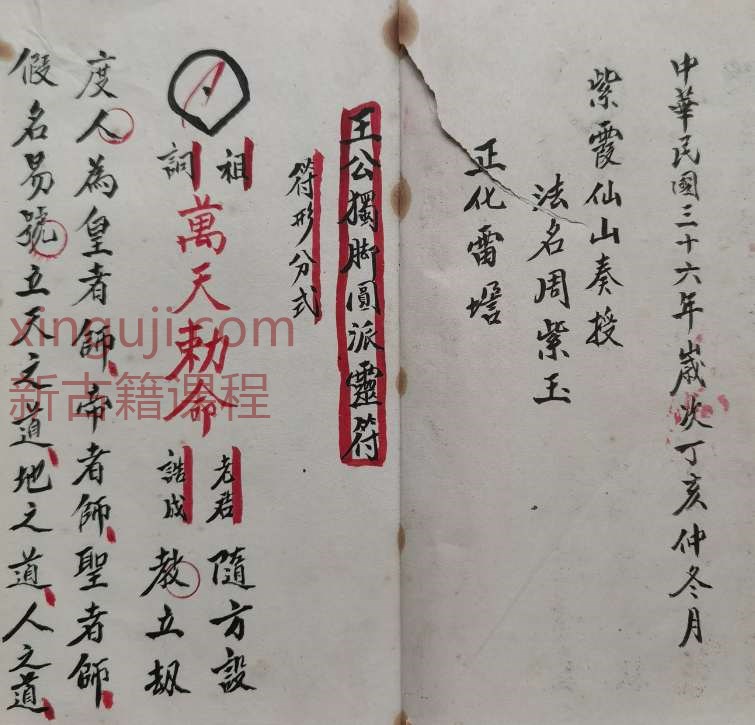 中華民國三十六年歲次丁亥仲冬月
紫霞仙山奏授
法名周紫玉
正化雷壇
王公獨脚圓派靈符
符形分式
祖
詞
萬天勅命
老君
誥成
隨方設
教立劫
度人為皇者師帝者師聖者師
假名易號立天之道地之道人之道
xinguji.com
新古籍课程